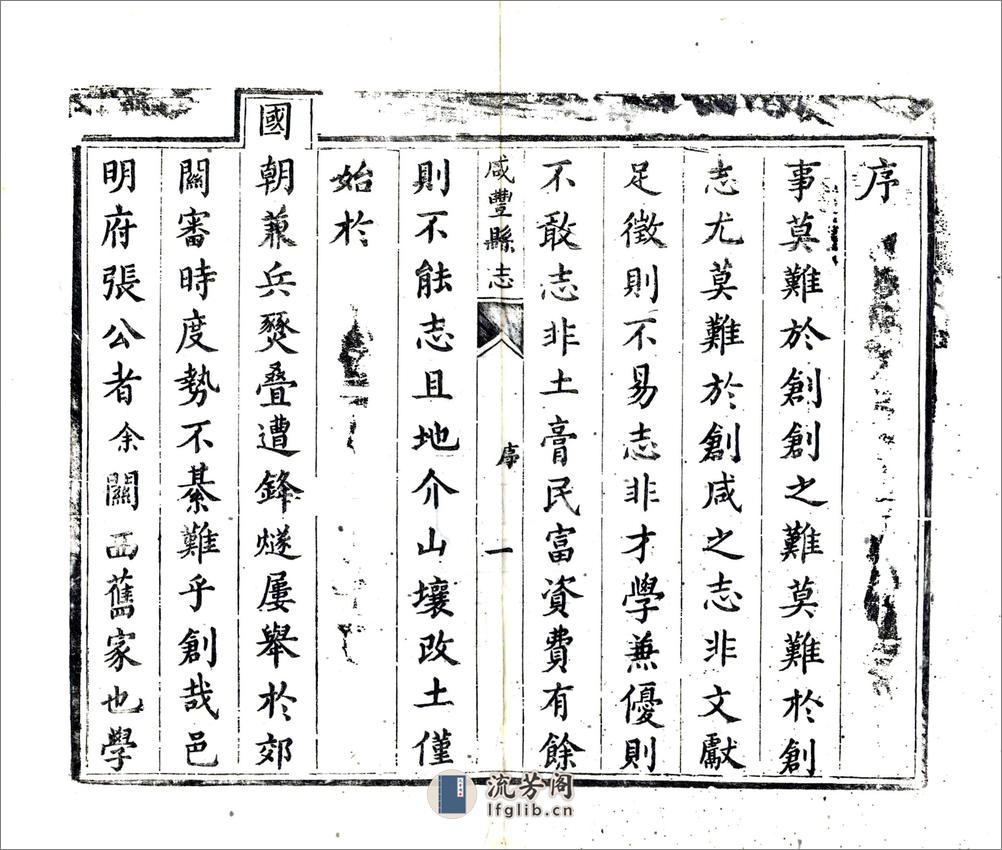 序
事莫難於創創之難莫難於創
志尤莫難於創咸之志非文獻
足徵則不易志非才學兼優則
不敢志非土膏民富資費有餘
咸豐縣志
序
一
則不能志且地介山壤改土僅
始於
國
朝蒹兵燹叠遭鋒燧屢舉於郊
關審時度勢不綦難乎創哉邑
明府張公者余關西舊家也學
流芳阁
lfglib.cn